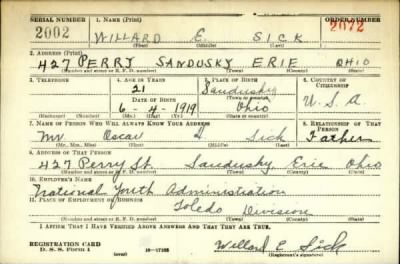 SERIAL NUMBER 1. NAME (Print) ORDER NUMBER
2002 WILLARD E. SICK 2072
(First) (Middle) (Last)
2. ADDRESS (Print)
427 PERRY SANDUSKY ERIE OHIO
(Number and street or R. F. D. number) (Town) (County) (State)
3. TELEPHONE 4. AGE IN YEARS 5. PLACE OF BIRTH 6. COUNTRY OF CITIZENSHIP
21 Sandusky
DATE OF BIRTH (Town or county)
6-4-1919 Ohio U.S.A
(Exchange) (Number) (Mo.) (Day) (Yr.) (State or country)
7. NAME OF PERSON WHO WILL ALWAYS KNOW YOUR ADDRESS 8. RELATIONSHIP OF THAT PERSON
Mr. Oscar Sick Father
(Mr., Mrs., Miss) (First) (Middle) (Last)
9. ADDRESS OF THAT PERSON
427 Perry St. Sandusky Erie Ohio
(Number and street or R. F. D. number) (Town) (County) (State)
10. EMPLOYER'S NAME
National Youth Administration
11. PLACE OF EMPLOYMENT OR BUSINESS
Toledo Division
(Number and street or R. F. D. number) (Town) (County) (State)
I AFFIRM THAT I HAVE VERIFIED ABOVE ANSWERS AND THAT THEY ARE TRUE.
REGISTRATION CARD
D. S. S. Form 1 Willard E Sick
(Registrant's signature)